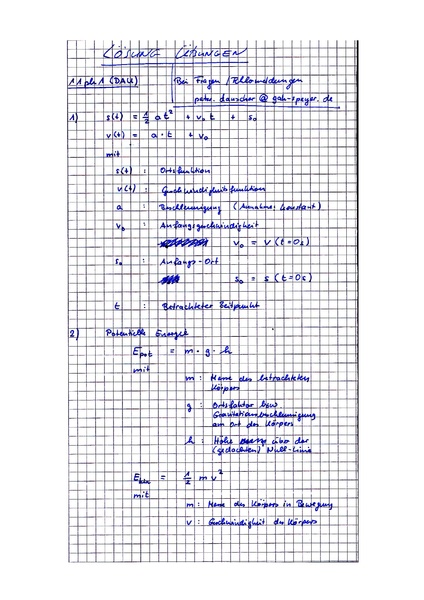 LÖSUNG ÜBUNGEN
11ph1 (DAU)
Bei Fragen / Fehlermeldungen
peter.dauscher@gah-speyer.de
1) s(t) = 1/2 a t² + v₀ t + s₀
v(t) = a · t + v₀
mit
s(t) : Ortsfunktion
v(t) : Geschwindigkeitsfunktion
a : Beschleunigung (Annahme: konstant)
v₀ : Anfangsgeschwindigkeit
v₀ = v(t=0s)
s₀ : Anfangs-Ort
s₀ = s(t=0s)
t : Betrachteter Zeitpunkt
2) Potentielle Energie
E_pot = m · g · h
mit
m : Masse des betrachteten
Körpers
g : Ortsfaktor bzw.
Gravitationsbeschleunigung
am Ort des Körpers
h : Höhe über der
(gedachten) Null-Linie
E_kin = 1/2 m v²
mit
m : Masse des Körpers in Bewegung
v : Geschwindigkeit des Körpers